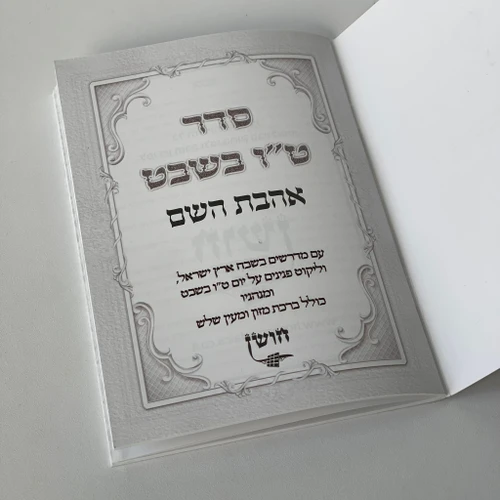 סדר
ט"ו בשבט
אהבת השם
עם מדרשים בשבח ארץ ישראל,
וליקוט פנינים על יום ט"ו בשבט
ומנהגיו
כולל ברכת מזון ומעין שלש
חושן